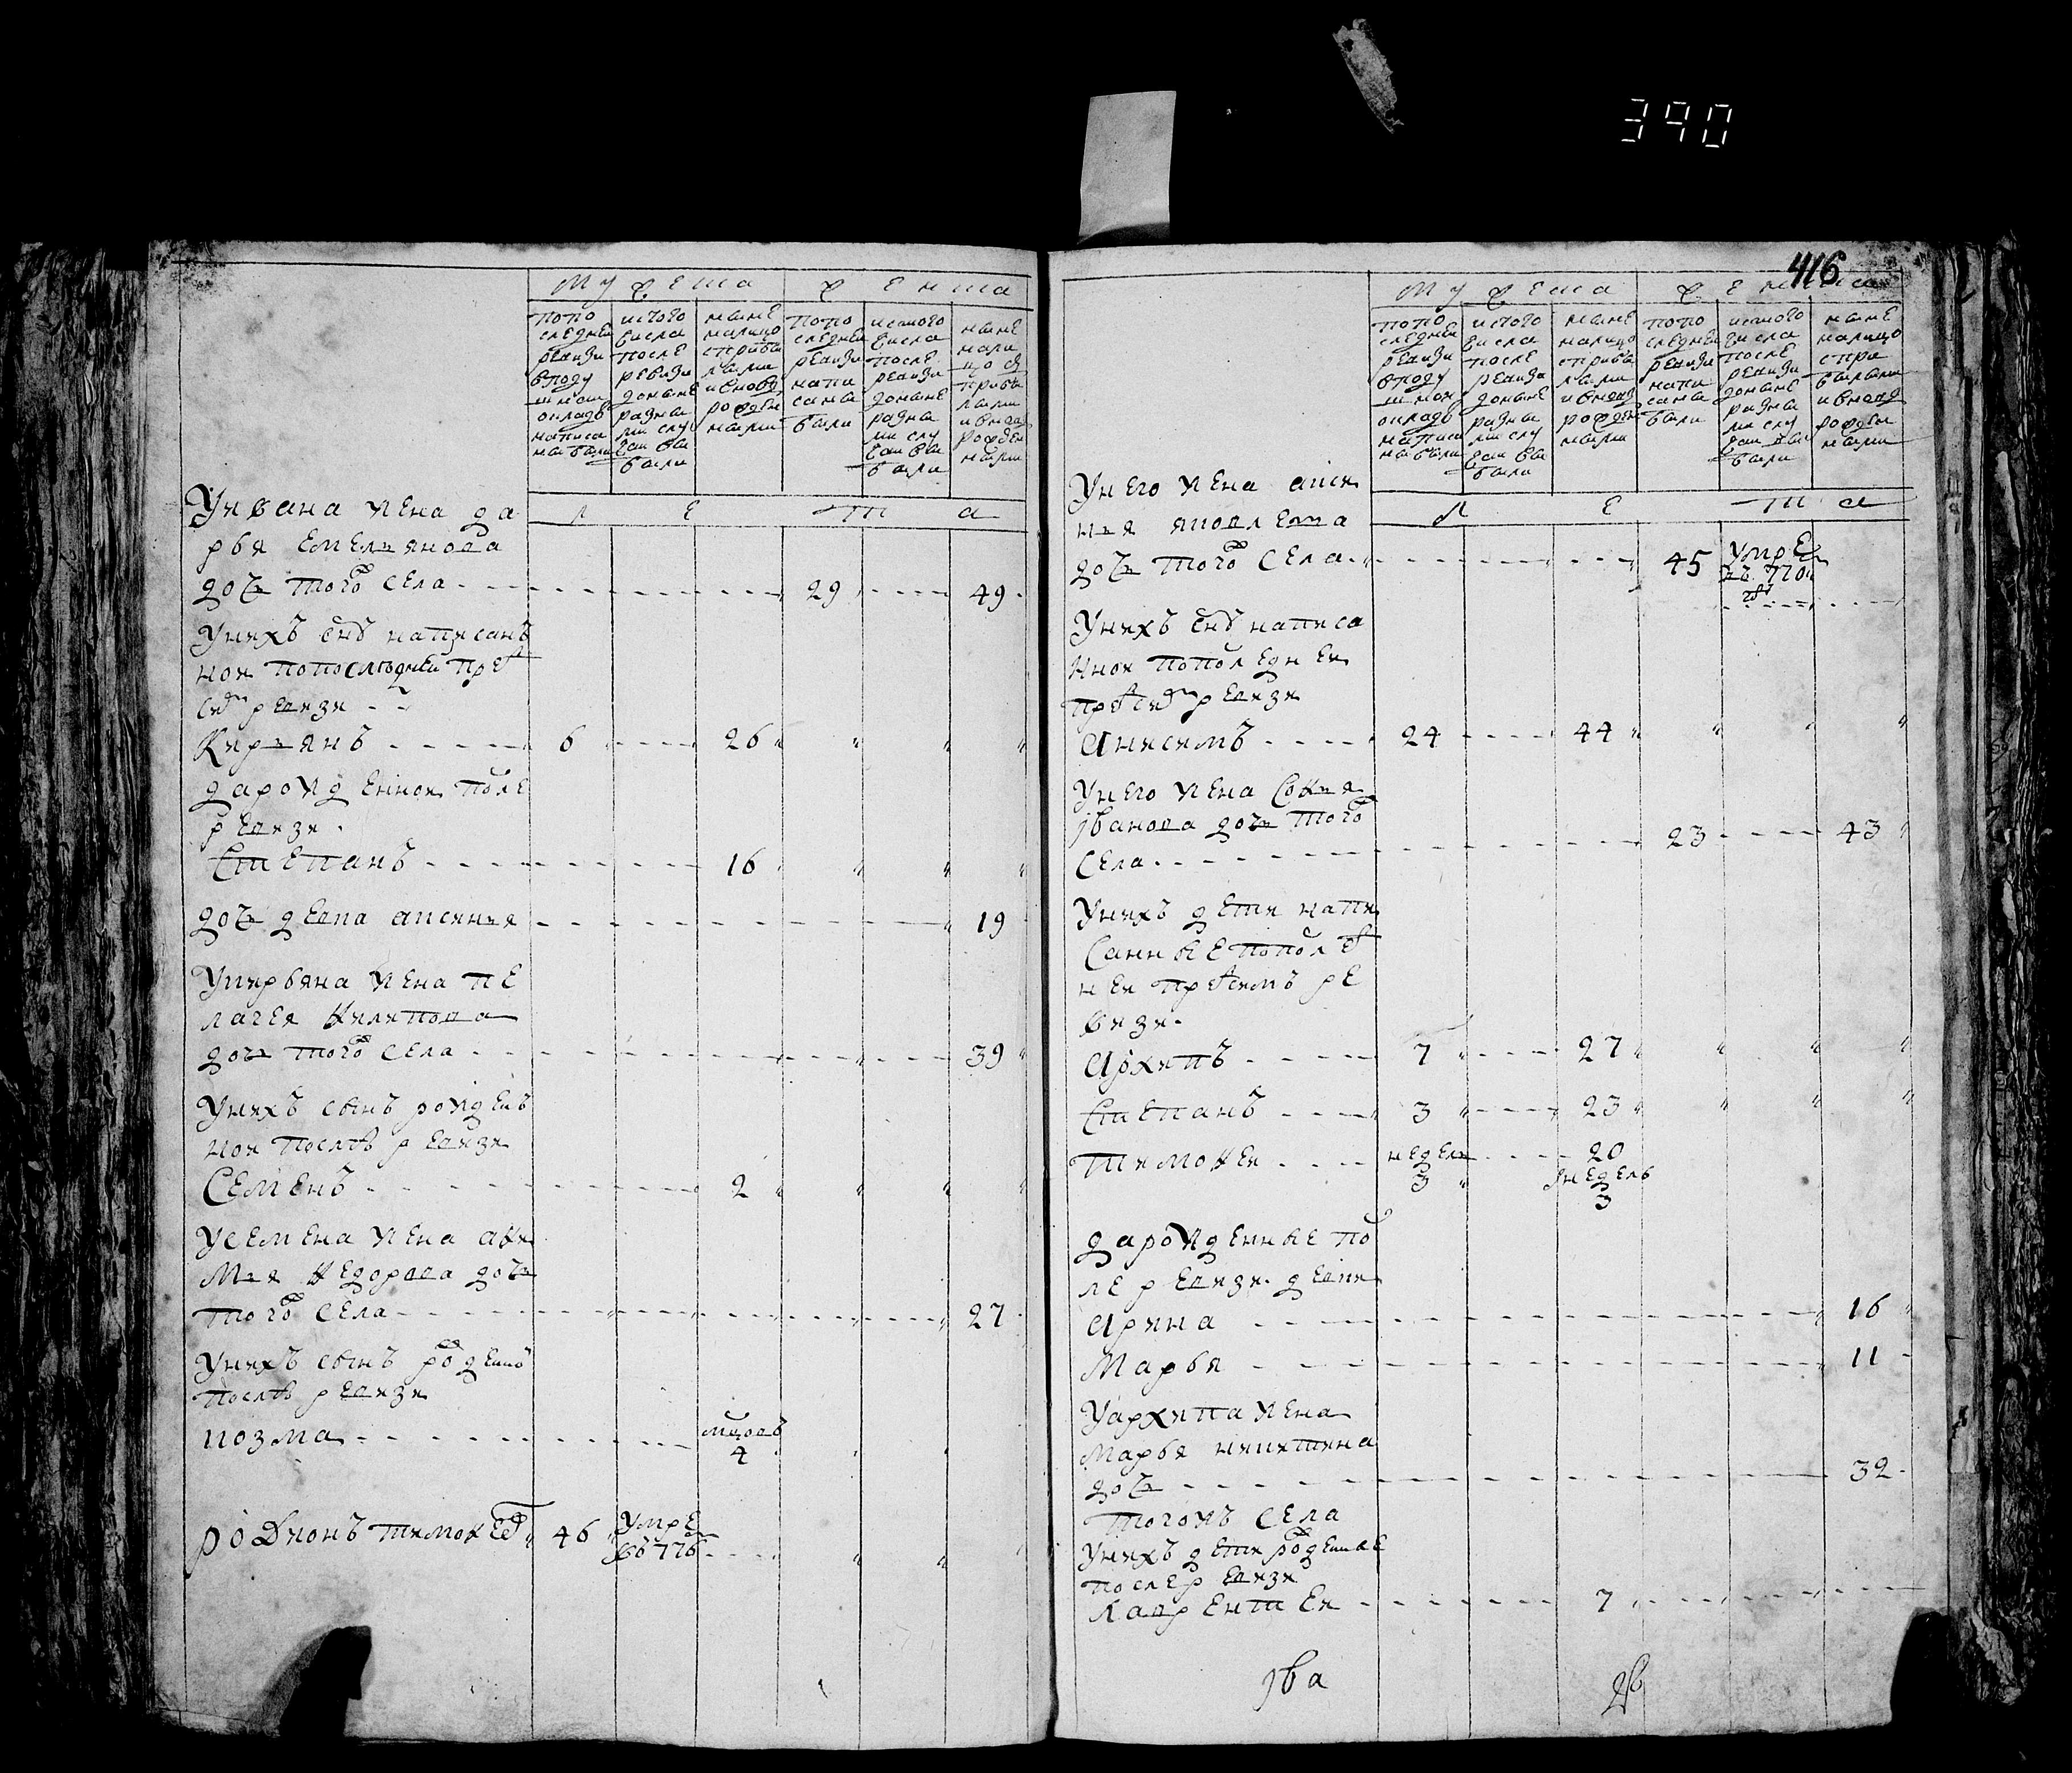 390
416
Мужеска
Женска
попо
следнеи
ревизи
вподу
шнои
окладъ
написа
ны были
истого
числа
после
ревизи
доныне
разны
ми слу
чаи вы
были
ныне
налицо
сприбы
лыми
ивновь
рожден
ными
попо
следнеи
ревизи
напи
саны
были
истого
числа
после
ревизи
доныне
разны
ми слу
чаи вы
были
ныне
нали
цо съ
прибы
лыми
ивновь
рожден
ными
Лета
Уивана жена да
рья емельянова
дочь того села 29 49
Унихъ снъ написанъ
нои попоследнеи пред
сеи ревизи
Кирьянъ 6 26
да рожденнои после
ревизи
Степанъ 16
дочь девка аксинья 19
Укирьяна жена пе
лагея филипова
дочь того села 39
Унихъ сынъ рожденъ
нои послѣ ревизи
Семенъ 2
Усемена жена афи
мья федорова дочь
того села 27
Унихъ сынъ рожденнои
послѣ ревизи
козма месецовъ
4
родионъ тимофеевъ 46 умре
въ 776
Мужеска
Женска
попо
следнеи
ревизи
вподу
шнои
окладъ
написа
ны были
истого
числа
после
ревизи
доныне
разны
ми слу
чаи вы
были
ныне
налицо
сприбы
лыми
ивновь
рожден
ными
попо
следнеи
ревизи
напи
саны
были
истого
числа
после
ревизи
доныне
разны
ми слу
чаи вы
были
ныне
налицо
спри
былыми
ивновь
рожден
ными
Лета
Унего жена акси
нья яковлева
дочь того села 45 умре
въ 770
Унихъ снъ написа
ннои попоследнеи
предсеи ревизи
Анисимъ 24 44
Унего жена Софья
Иванова дочь того
села 23 43
Унихъ дети напи
санные попослед
неи предсимъ ре
визи
Архипъ 7 27
Степанъ 3 23
Тимофеи недель 20
3 Инедель
3
да рожденные пос
ле ревизи девки
Арина 16
Марья 11
Уархипа жена
Марья никитина
дочь 32
тогожъ села
Унихъ дети рожденные
после ревизи
Лаврентеи 7
Ива